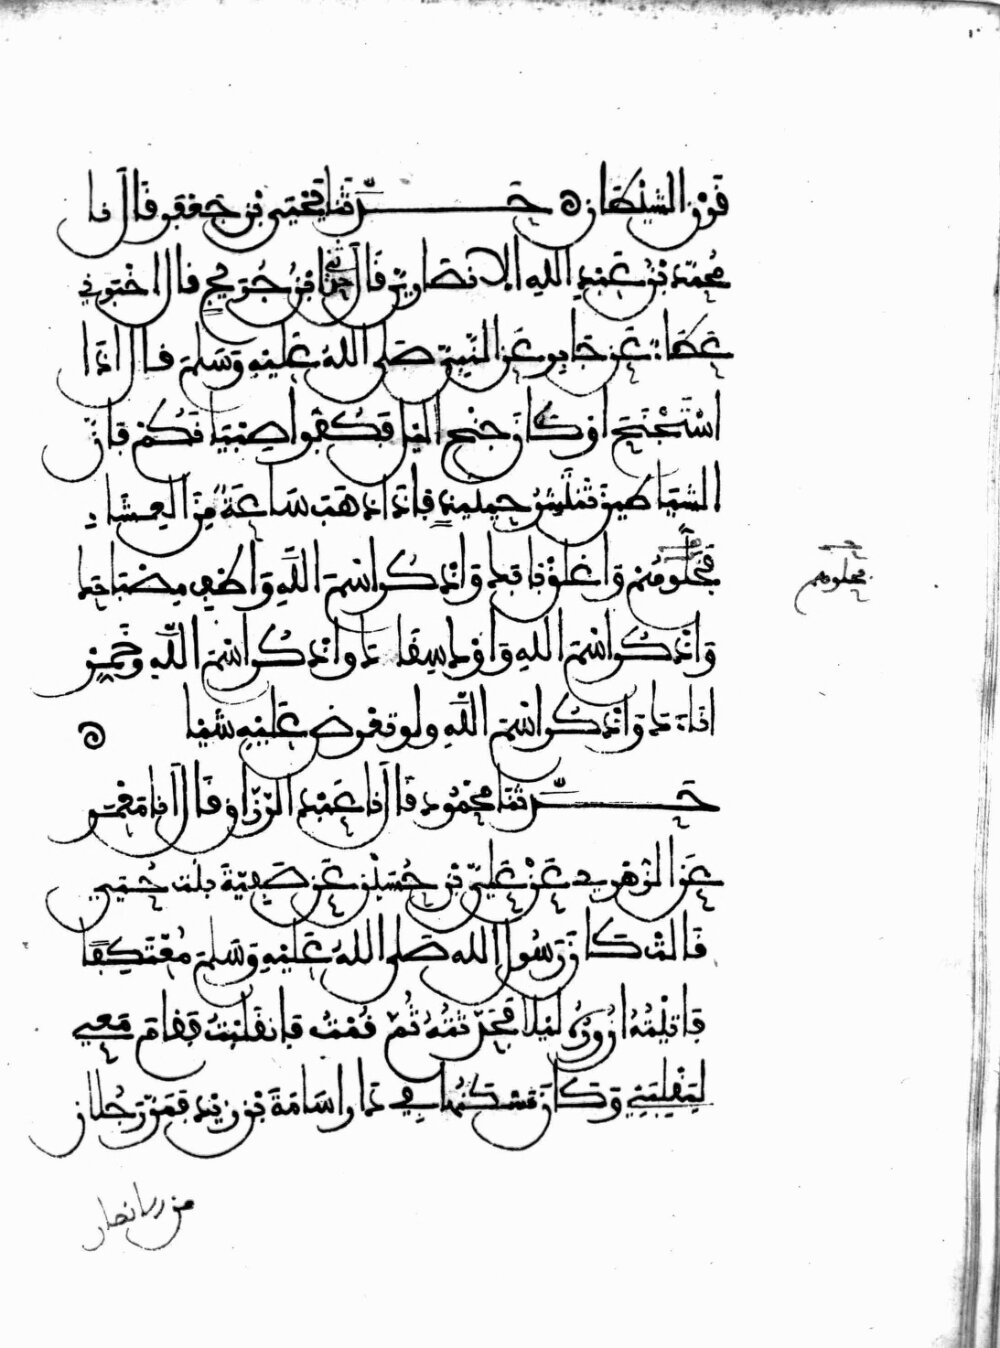 قرن الشيطان ه حدثنا يحيى بن جعفر قال نا
محمد بن عبد الله الانصاري قال حدثني ابن جريج قال اخبرني
عطاء عن جابر عن النبي صلى الله عليه وسلم قال اذا
استجنح او كان جنح الليل فكفوا صبيانكم فان
الشياطين تنتشر حينئذ فاذا ذهب ساعة من العشاء
فحلوهم واغلق بابك واذكر اسم الله واطفي مصباحك
واذكر اسم الله واوك سقاءك واذكر اسم الله وخمر
اناءك واذكر اسم الله ولو تعرض عليه شيئا ه
حدثنا محمود قال نا عبد الرزاق قال انا معمر
عن الزهري عن علي بن حسين عن صفية بنت حيي
قالت كان رسول الله صلى الله عليه وسلم معتكفا
فاتيته ازوره ليلا فحدثته ثم قمت فانقلبت فقام معي
ليقلبني وكان مسكنها في دار اسامة بن زيد فمر رجلان
فحلوهم
من الانصار